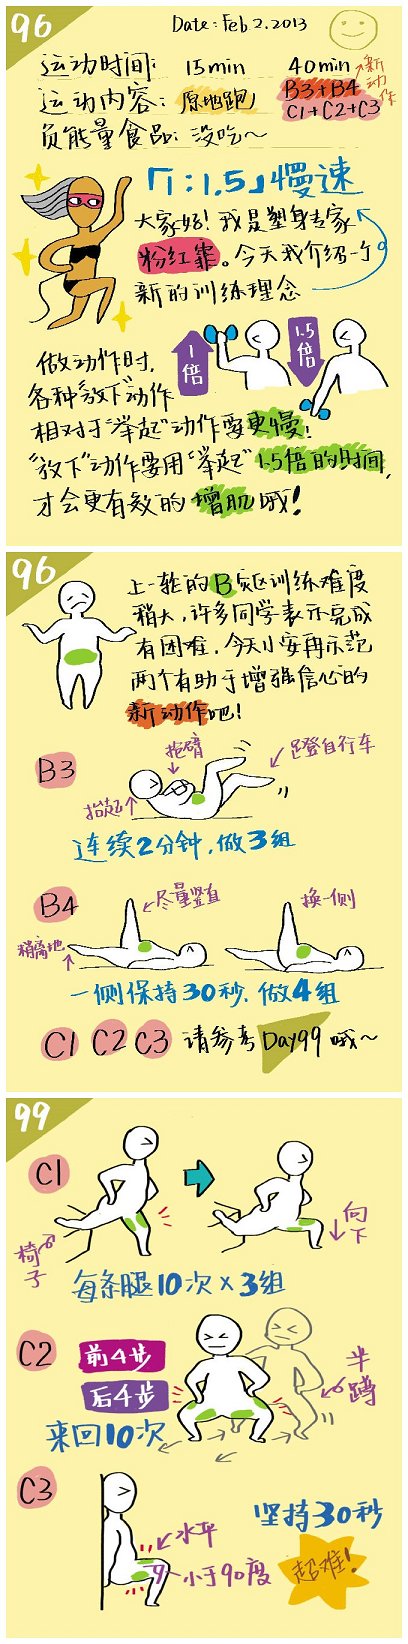 96
Date: Feb.2.2013
运动时间: 15min 40min
运动内容: 原地跑 B3+B4 新动作
C1+C2+C3
负能量食品: 没吃~
「1:1.5」慢速
大家好! 我是塑身专家
粉红靠。今天我介绍一个
新的训练理念
1倍
1.5倍
做动作时,
各种"放下"动作
相对于"举起"动作要更慢!
"放下"动作要用"举起"1.5倍的时间,
才会更有效的增肌哦!
96
上一轮的B灾区训练难度
稍大,许多同学表示完成
有困难,今天小安再示范
两个有助于增强信心的
新动作吧!
B3
抱臂
蹬自行车
抬起
连续2分钟,做3组
B4
尽量竖直
换一侧
稍离地
一侧保持30秒,做4组
C1 C2 C3 请参考 Day99 哦~
99
C1
椅子
向下
每条腿10次×3组
C2
前4步
后4步
半蹲
来回10次
C3
水平
小于90度
坚持30秒
超难!